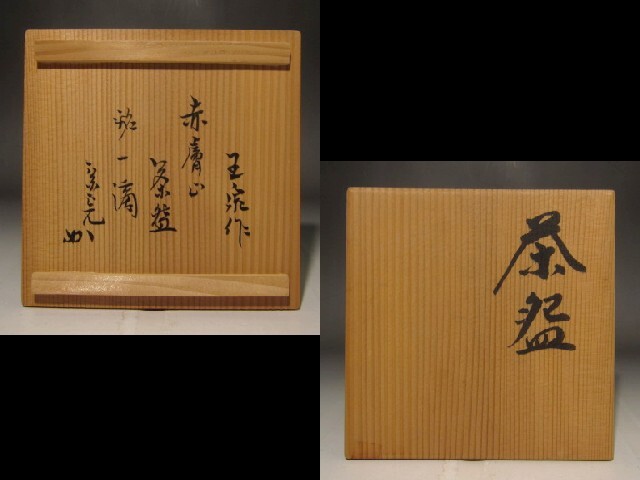 王宗作
赤膚山
茶盌
銘一滴
茶盌